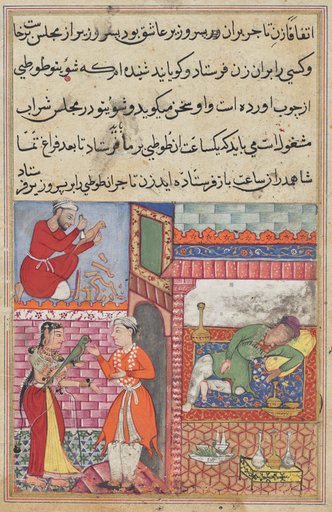 اتفاقا زن تاجر بران پسر وزیر عاشق بود پسر وزیر از مجلس برخاست
وکسی را بران زن فرستاد و کوبا ید شنیده ام که شوی تو طوطی
از چوب آورده است و او سخن میکوید و شوی تو در مجلس شراب
مشغول است می باید که یکساعت ان طوطی بر ما فرستاد تا بعد فراغ تماشا
هم در ان ساعت باز فرستاده اید زن تاجر ان طوطی را بر پسر وزیر فرستاد